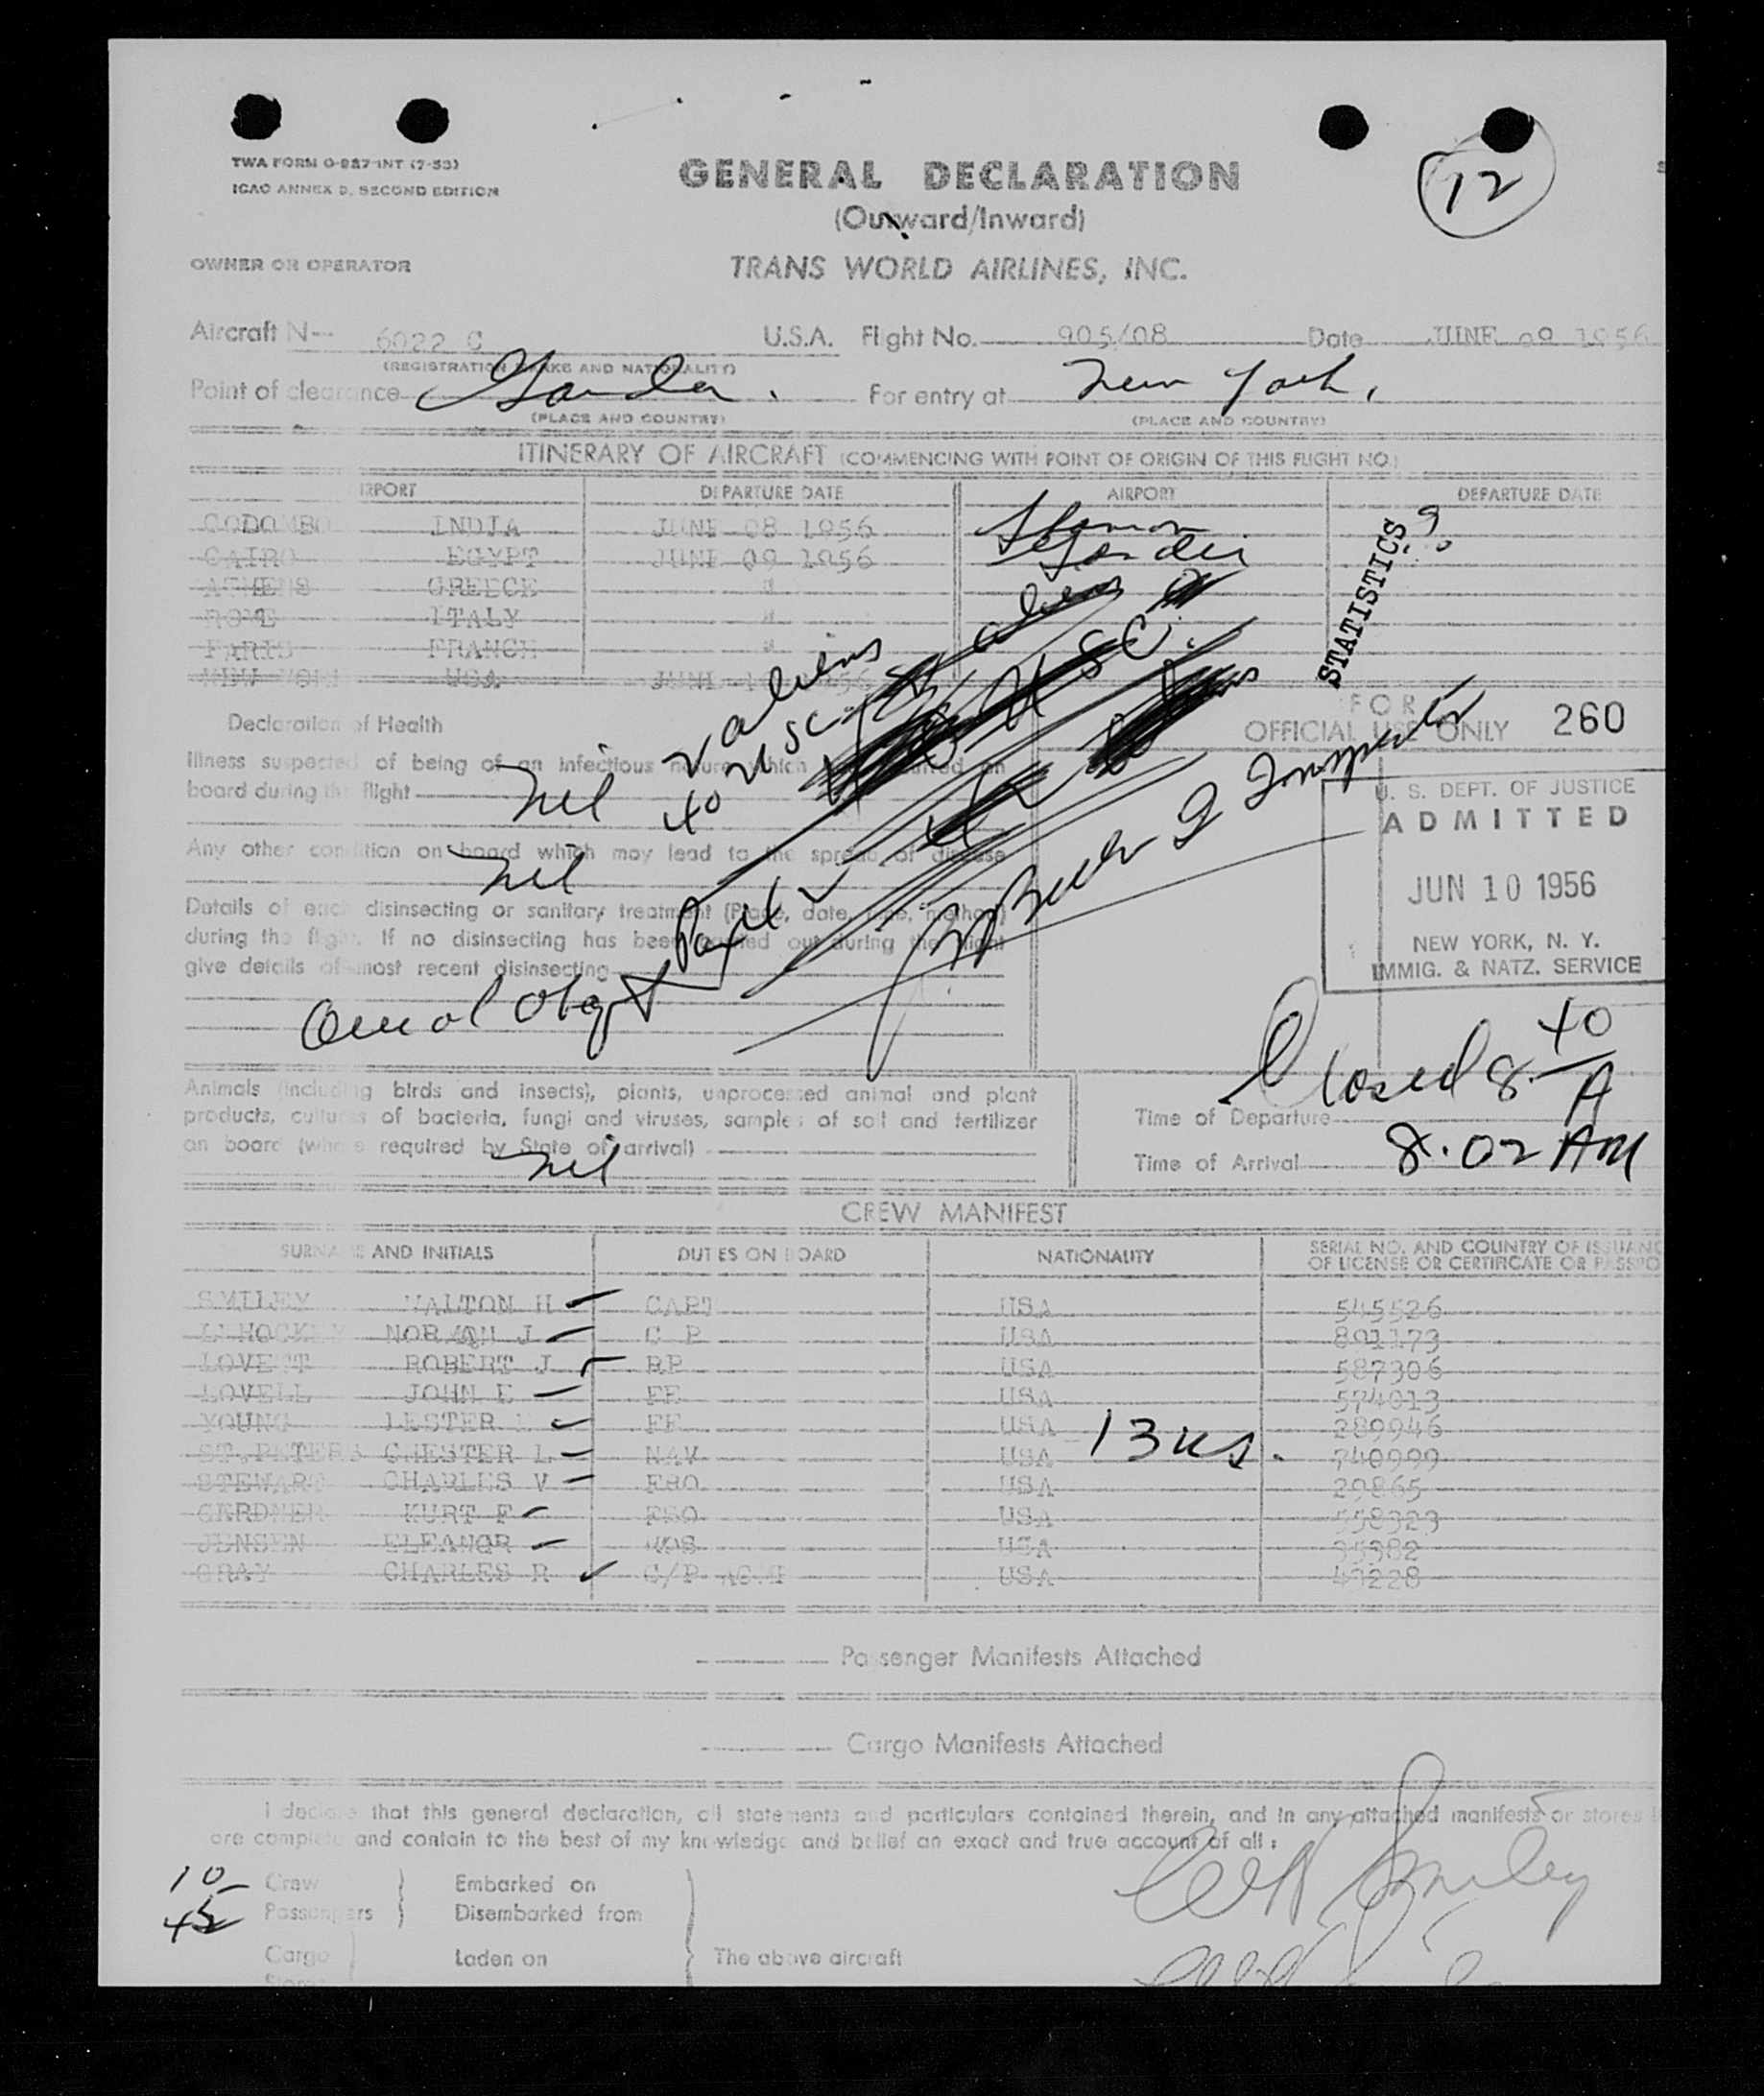 12
TWA FORM O-987-INT (7-53)
ICAO ANNEX 9, SECOND EDITION
GENERAL DECLARATION
(Outward/Inward)
OWNER OR OPERATOR
TRANS WORLD AIRLINES, INC.
Aircraft N- 6022 C U.S.A. Flight No. 905/08 Date JUNE 09 1956
(REGISTRATION MARKS AND NATIONALITY)
Point of clearance Gander. For entry at New York,
(PLACE AND COUNTRY) (PLACE AND COUNTRY)
ITINERARY OF AIRCRAFT (COMMENCING WITH POINT OF ORIGIN OF THIS FLIGHT NO.)
AIRPORT DEPARTURE DATE AIRPORT DEPARTURE DATE
INDIA JUNE 08 1956 Shannon
CAIRO EGYPT JUNE 09 1956 Gander
ATHENS GREECE "
ROME ITALY "
PARIS FRANCE "
NEW YORK USA JUNE 10 1956
STATISTICS
2 aliens
40 USC
Pax 42
Inspector
Declaration of Health
FOR
OFFICIAL USE ONLY 260
Illness suspected of being of an infectious nature which has occurred on
board during the flight Nil
Any other condition on board which may lead to the spread of disease
Nil
Details of each disinsecting or sanitary treatment (Place, date, time, method)
during the flight. If no disinsecting has been carried out during the flight
give details of most recent disinsecting
U. S. DEPT. OF JUSTICE
ADMITTED
JUN 10 1956
NEW YORK, N. Y.
IMMIG. & NATZ. SERVICE
Closed 8.40 A
Animals (including birds and insects), plants, unprocessed animal and plant
products, cultures of bacteria, fungi and viruses, samples of soil and fertilizer
on board (where required by State of arrival)
Nil
Time of Departure
Time of Arrival 8.02 AM
CREW MANIFEST
SURNAME AND INITIALS DUTIES ON BOARD NATIONALITY SERIAL NO. AND COUNTRY OF ISSUANC
OF LICENSE OR CERTIFICATE OR PASSPO
SMILEY WALTON H CAPT USA 545526
NORMAN J C P USA 891173
LOVETT ROBERT J RP USA 587306
LOVELL JOHN E FE USA 574013
YOUNG LESTER FE USA 289946
ST.PETERS CHESTER L NAV USA 740999
13 us.
STEWART CHARLES V FSO USA 29865
GERDNER KURT F FSO USA 558323
JENSEN ELEANOR HOS USA 35382
GRAY CHARLES R C/P USA 49228
Passenger Manifests Attached
Cargo Manifests Attached
I declare that this general declaration, all statements and particulars contained therein, and in any attached manifests or stores
are complete and contain to the best of my knowledge and belief an exact and true account of all:
10 Crew Embarked on
42 Passengers Disembarked from
W H Smiley
Cargo Laden on The above aircraft
Stores